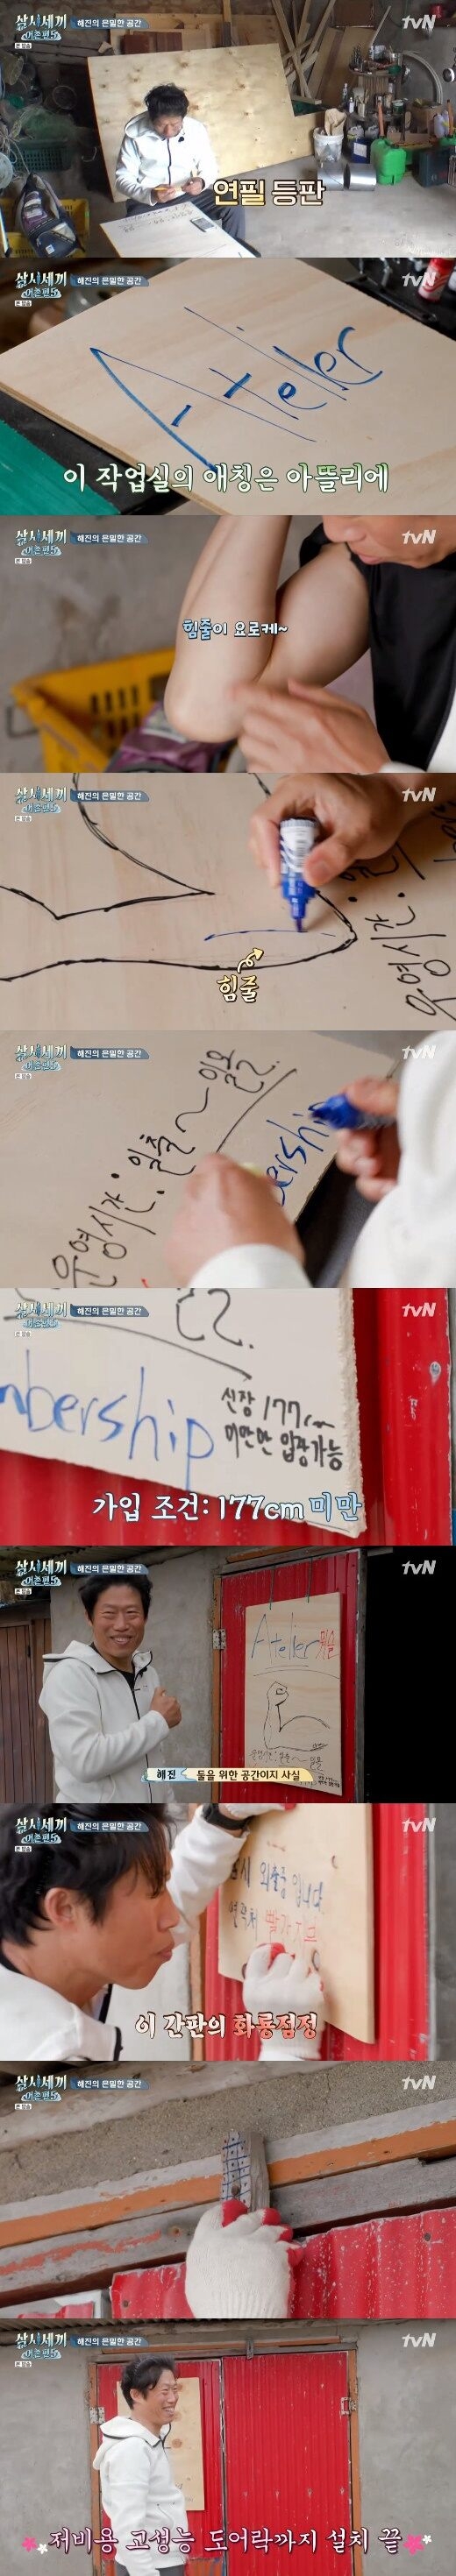 삼시세끼
어촌편5
해진의 은밀한 공간
tvN
연필 등판
삼시세끼
어촌편5
해진의 은밀한 공간
tvN
Atelier
이 작업실의 애칭은 아뜰리에
삼시세끼
어촌편5
해진의 은밀한 공간
tvN
힘줄이 요로케~
삼시세끼
어촌편5
해진의 은밀한 공간
tvN
운영시간:
힘줄
삼시세끼
어촌편5
해진의 은밀한 공간
tvN
운영시간: 일출~일몰.
ership
삼시세끼
어촌편5
해진의 은밀한 공간
tvN
mbership
신장 177cm
미만만 입장가능
가입 조건: 177cm 미만
삼시세끼
어촌편5
해진의 은밀한 공간
tvN
Atelier 뭐슬
운영시간: 일출~일몰
해진 둘을 위한 공간이지 사실
삼시세끼
어촌편5
해진의 은밀한 공간
tvN
잠시 외출중입니다.
연락처 빨간지브
이 간판의 화룡점정
삼시세끼
어촌편5
해진의 은밀한 공간
tvN
삼시세끼
어촌편5
해진의 은밀한 공간
tvN
저비용 고성능 도어락까지 설치 끝